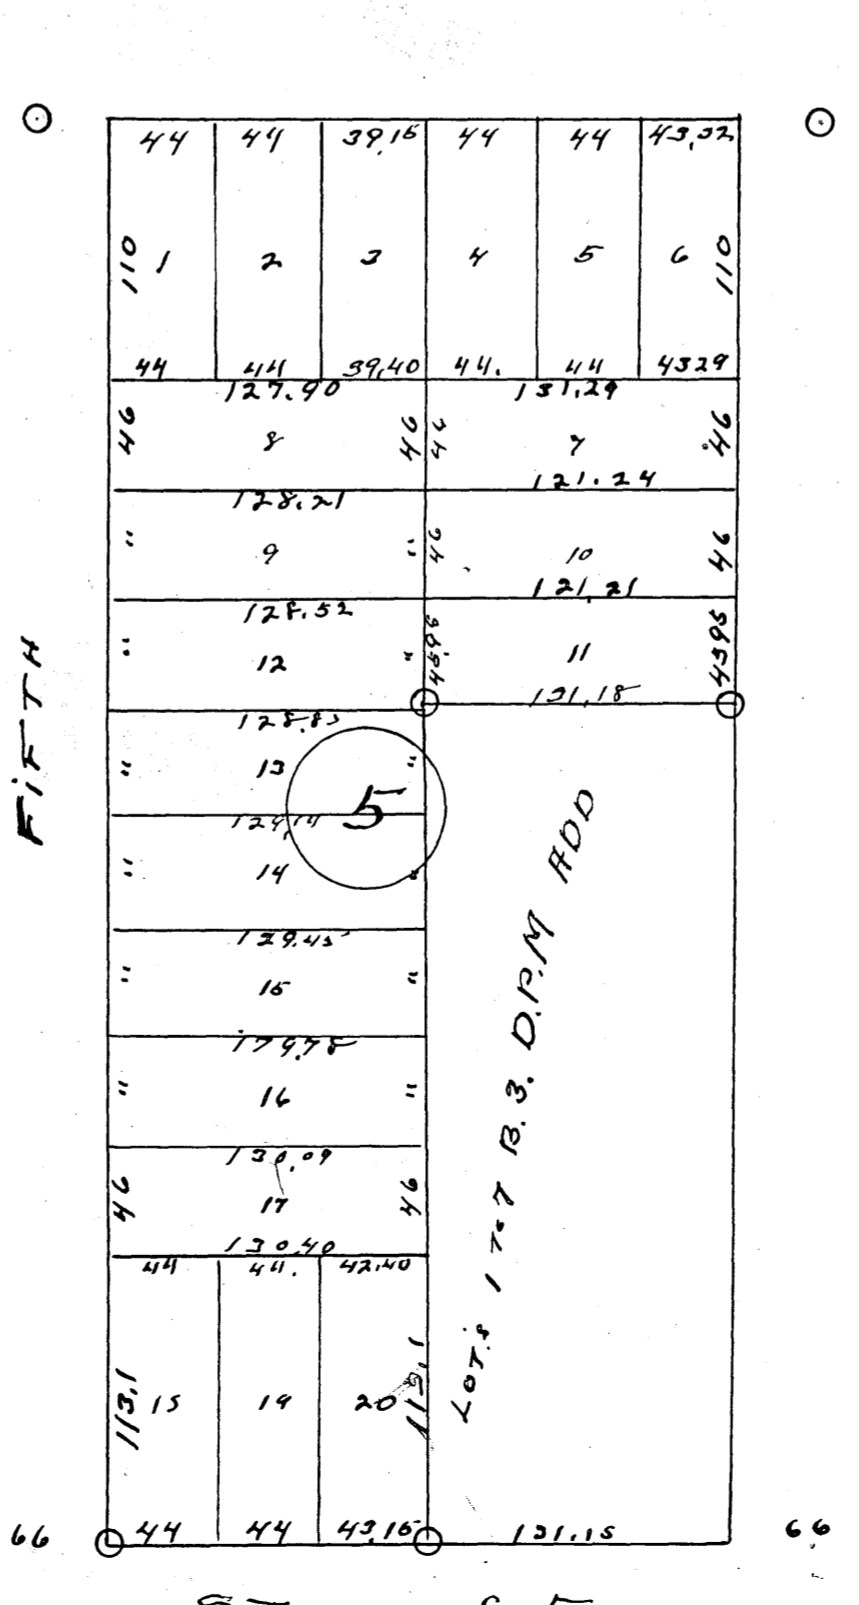 44 44 39.15 44 44 43.32
110 1 2 3 4 5 6 110
44 44 39.40 44. 44 4329
127.90 131.29
46 8 46 46 7 46
128.21 121.24
" 9 " 46 10 46
128.52 121.21
" 12 " 4595 11 4595
128.83 131.18
FiFTH
" 13 "
5
129.14
" 14 "
129.45
" 15 "
129.78
" 16 "
130.09
46 17 46
130.40
44 44. 42.40
113.1 15 19 20 113.1
LOT.S 1 To 7 B.3. D.P.M ADD
66 44 44 43.15 131.15 66